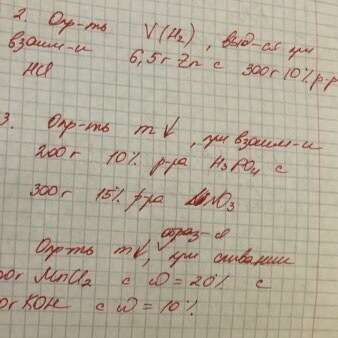 2. Опр-ть V(H₂), выд-ся при
взаим-и 6,5г Zn с 300г 10% р-р
HCl
3. Опр-ть m↓, при взаим-и
200г 10% р-ра H₃PO₄ с
300г 15% р-ра NO₃
образ-я
Опр-ть m↓, при сливании
00г MnCl₂ с ω = 20% с
0г KOH с ω = 10%.